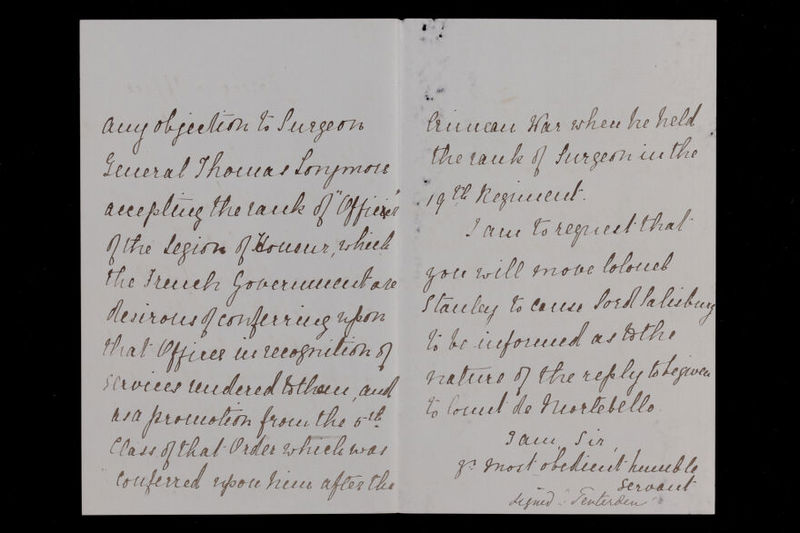 any objection to Surgeon
General Thomas Longmore
accepting the rank of "Officer"
of the Legion of Honour, which
the French Government are
desirous of conferring upon
that Officer in recognition of
services rendered to them, and
as a promotion from the 5th
Class of that Order which was
conferred upon him after the
Crimean War when he held
the rank of Surgeon in the
19th Regiment.
I am to request that
you will move Colonel
Stanley to cause Lord Salisbury
to be informed as to the
nature of the reply to be given
to Count de Montebello.
I am, Sir,
yr most obedient humble
Servant
signed: Tenterden